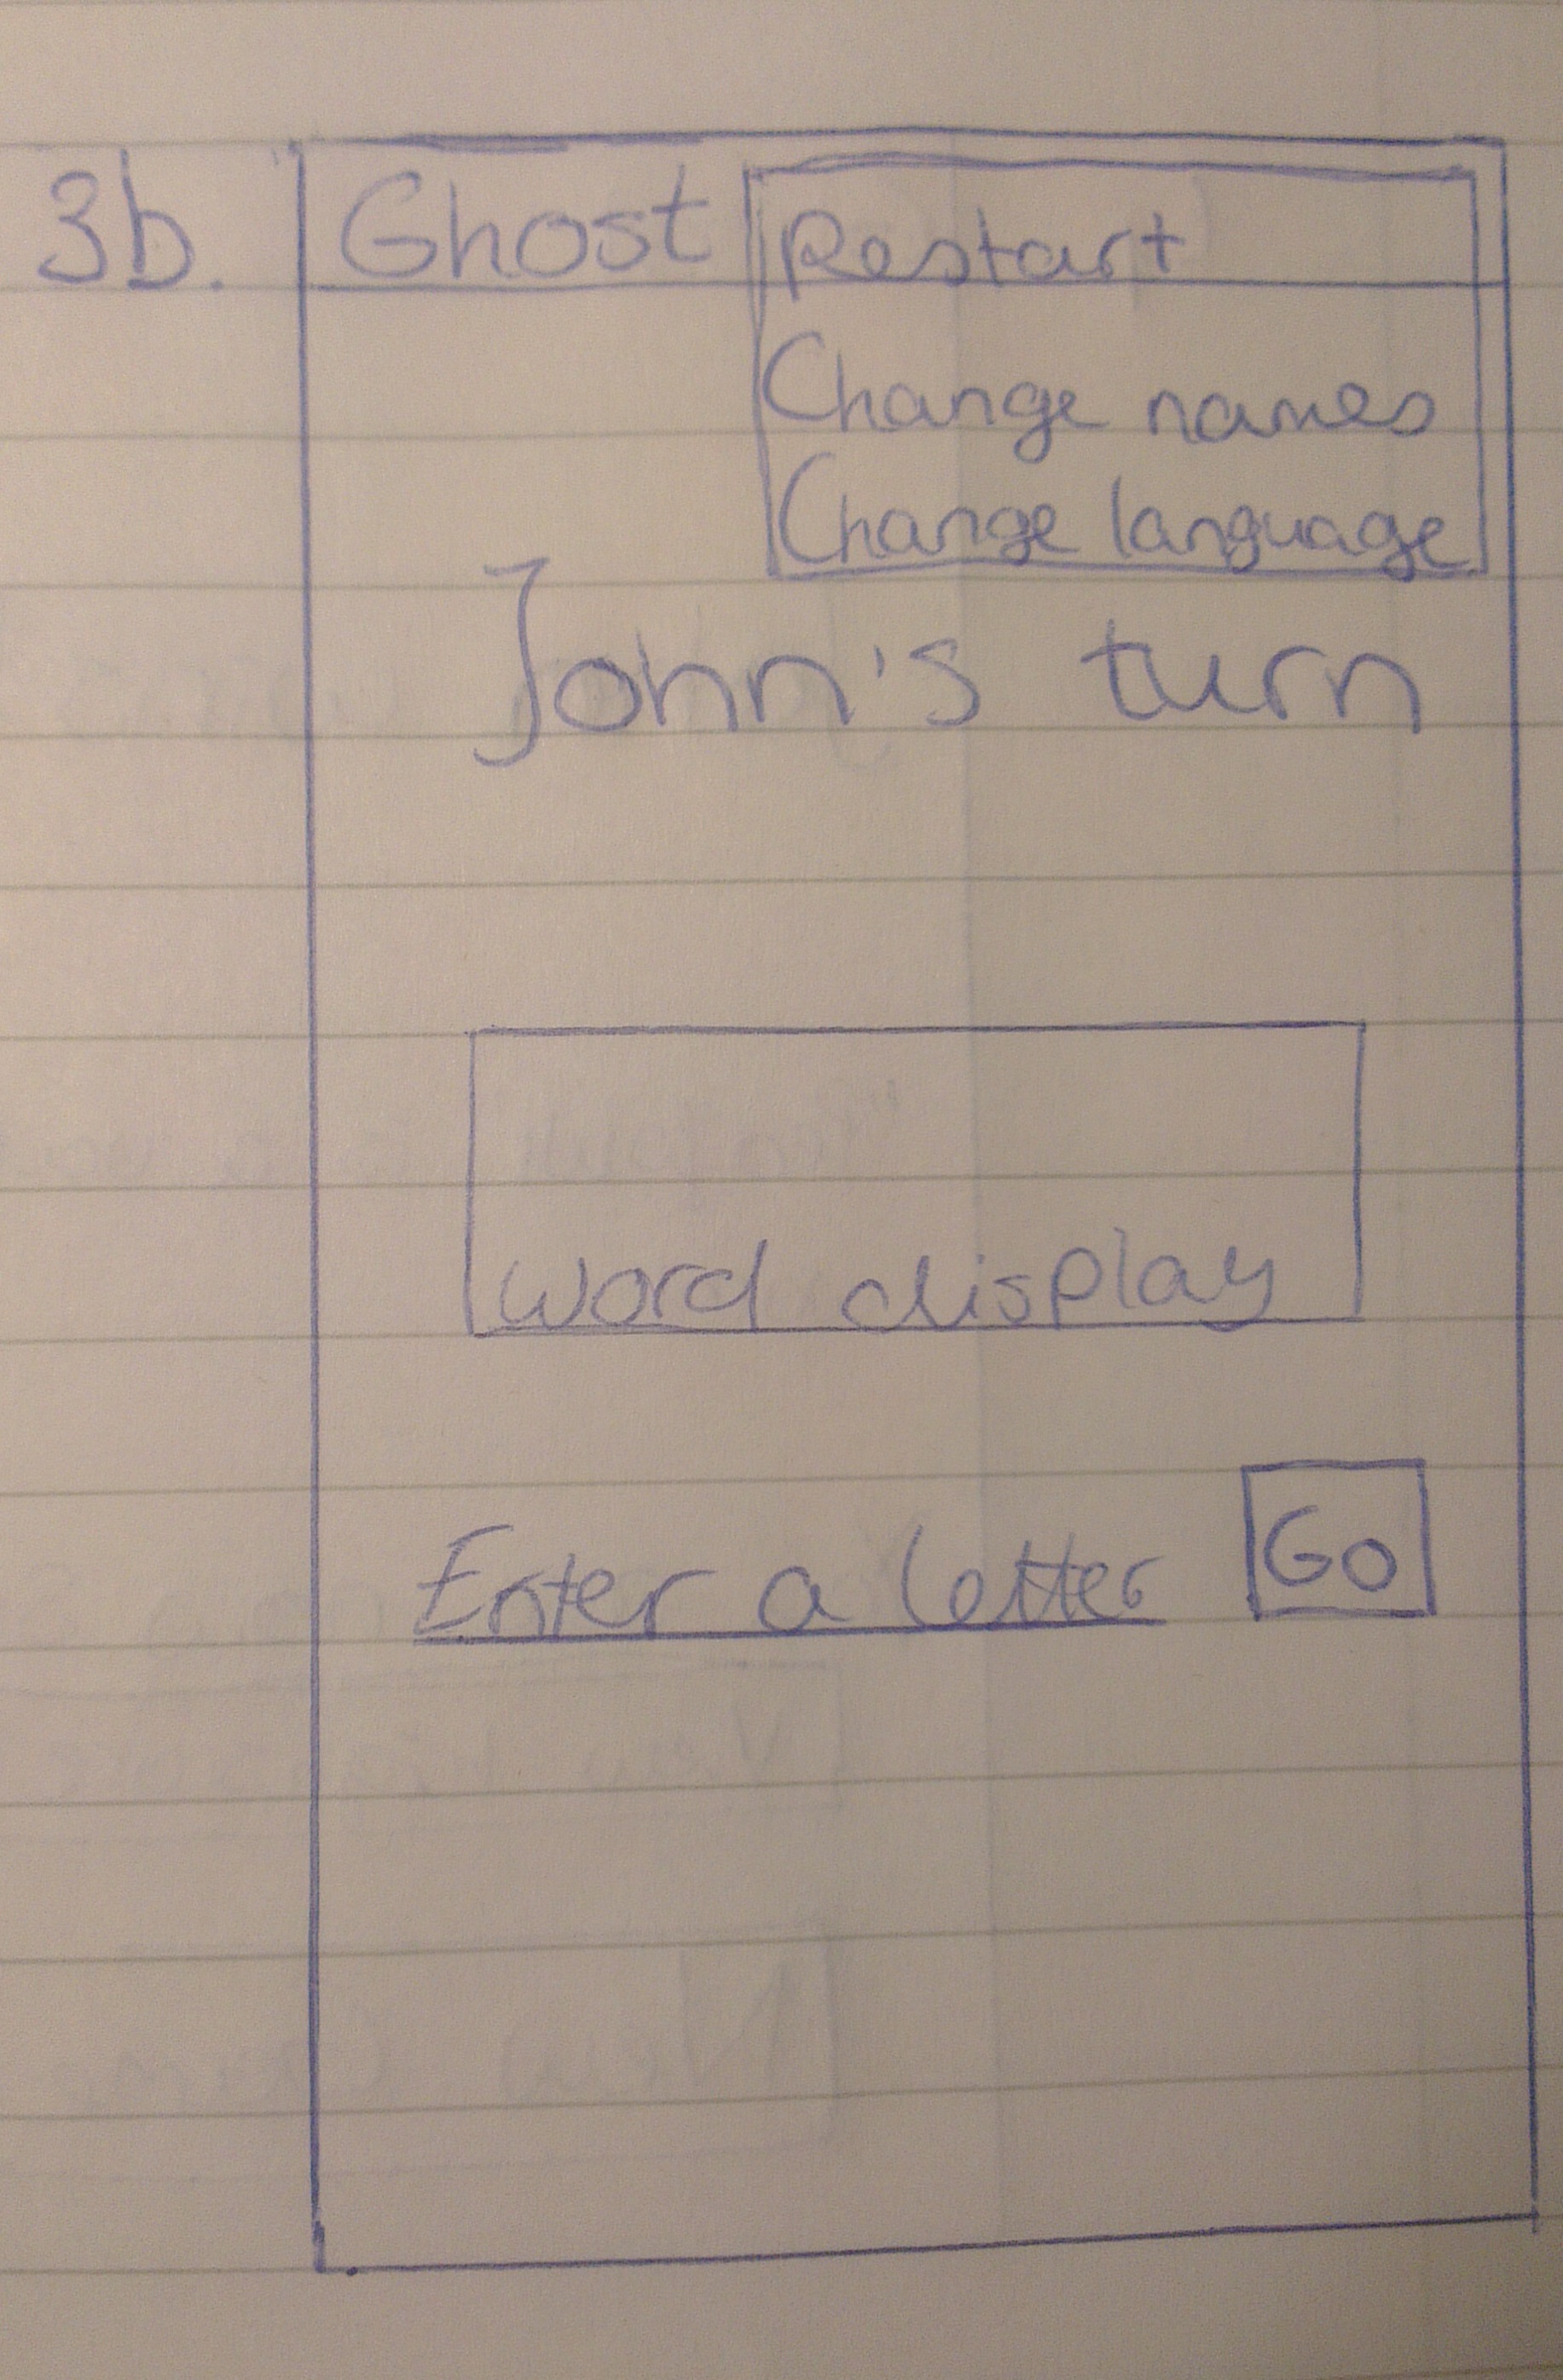 3b. Ghost Restart
Change names
Change language
John's turn
word display
Enter a letter Go